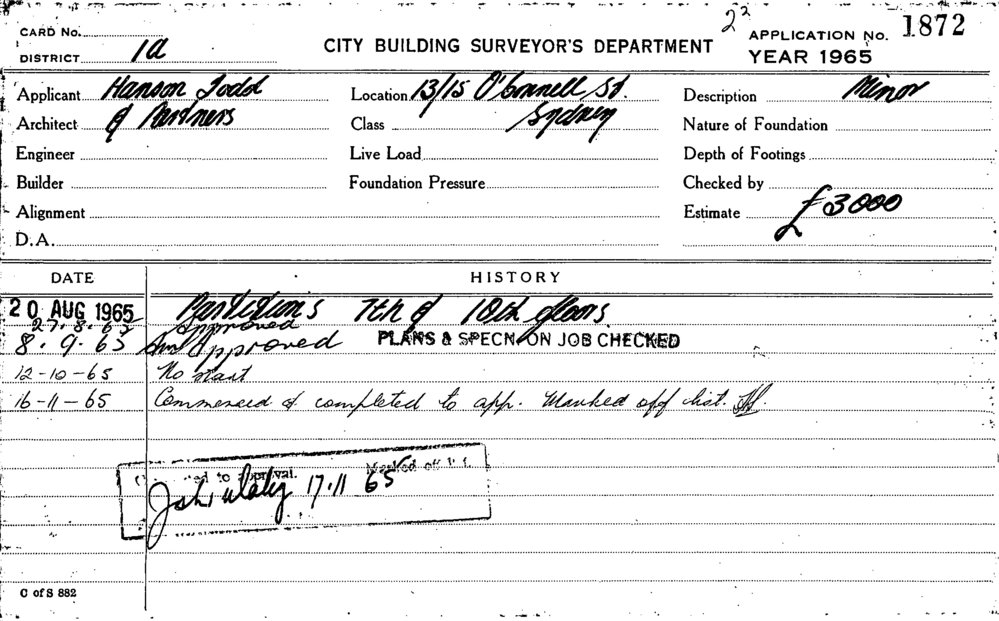 2²
CARD No.
DISTRICT 1a
CITY BUILDING SURVEYOR'S DEPARTMENT
APPLICATION No. 1872
YEAR 1965
Applicant Hanson Todd
Location 13/15 O'Connell St.
Description Minor
Architect & Partners
Class Sydney
Nature of Foundation
Engineer
Live Load
Depth of Footings
Builder
Foundation Pressure
Checked by
Alignment
Estimate £3000
D.A.
DATE
HISTORY
20 AUG 1965 Partitions 7th & 10th floors
27.8.65 Approved
8.9.65 Am Approved PLANS & SPECN ON JOB CHECKED
12-10-65 No start
16-11-65 Commenced & completed to app. Marked off list.
to approval. Marked off
17.11 65
C of S 882